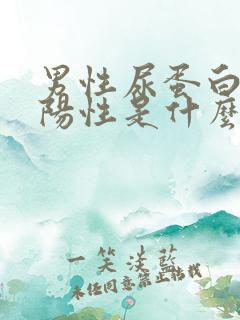 男性尿蛋白
陽性是什麼
一笑淡藍
未经同意禁止转载